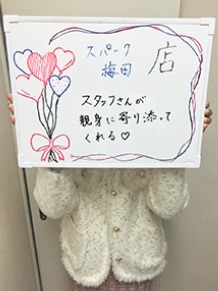 スパーク
梅田 店
スタッフさんが
親身に寄り添って
くれる♡